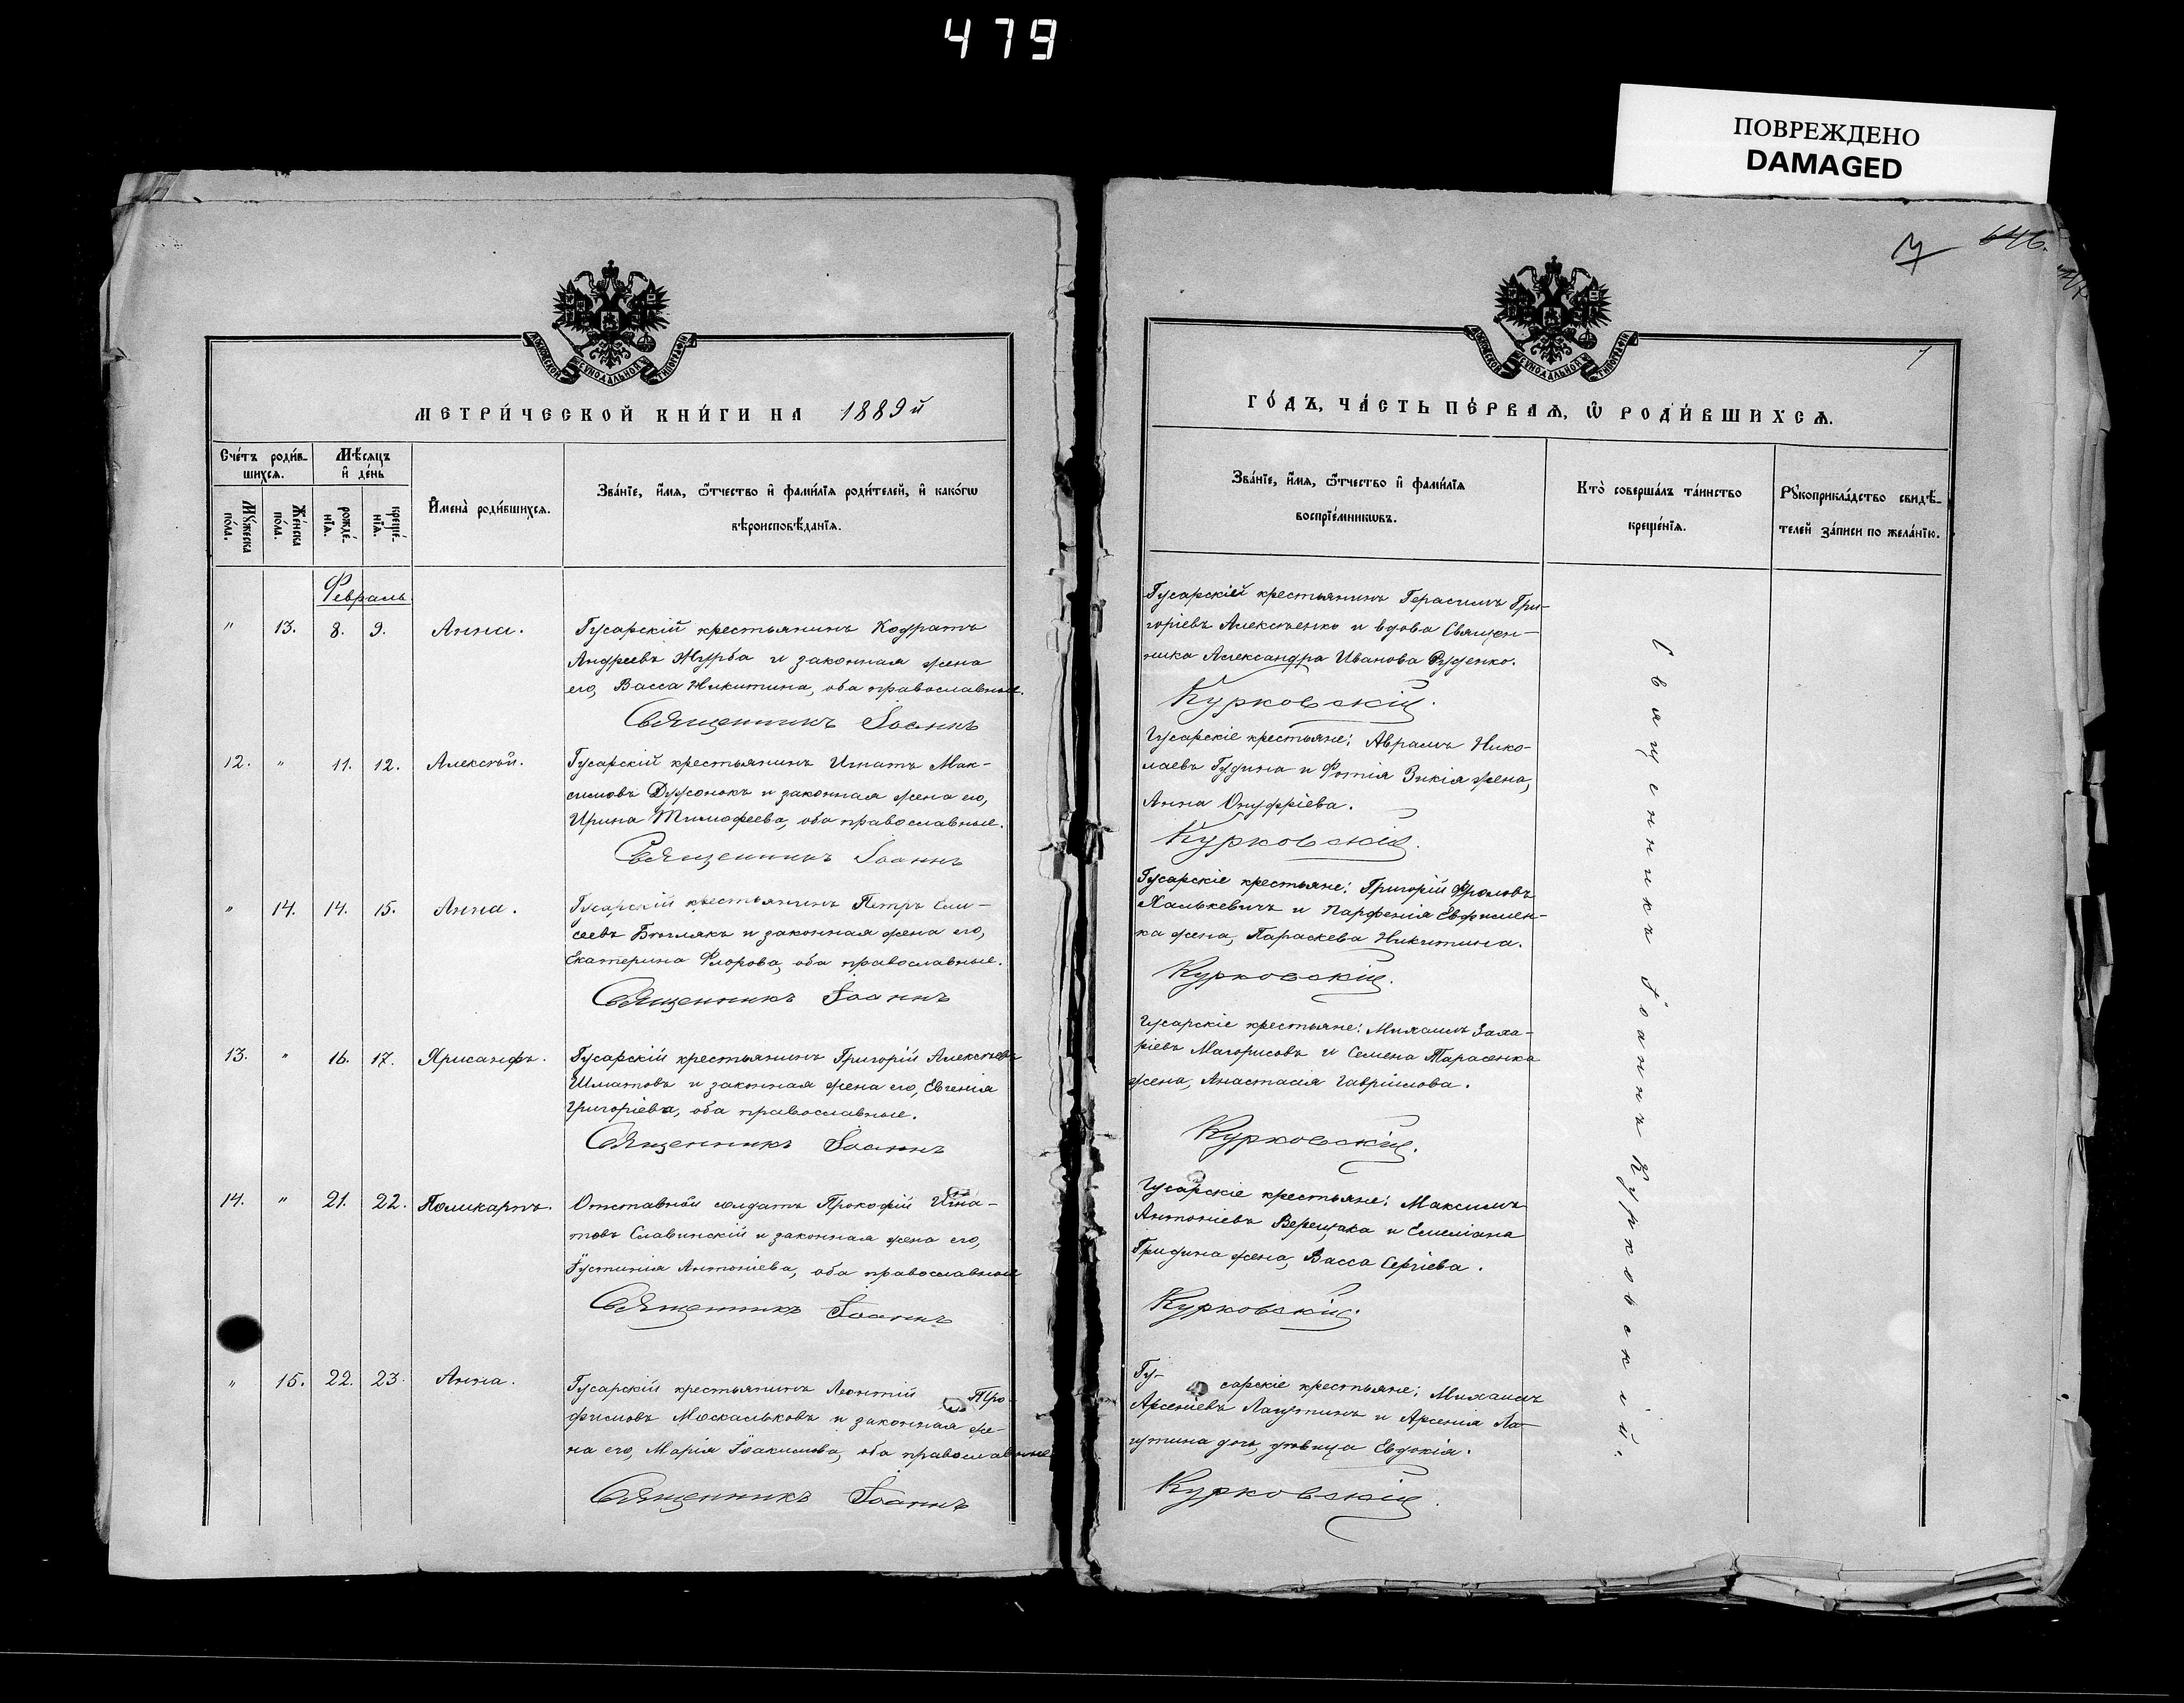 479
ПОВРЕЖДЕНО
DAMAGED
646.
МОСКОВСКОЙ СѴНОДАЛЬНОЙ ТИПОГРАФІИ
МОСКОВСКОЙ СѴНОДАЛЬНОЙ ТИПОГРАФІИ
МЕТРИ́ЧЕСКОЙ КНИ́ГИ НА 1889й
Сче́тъ роди́в-
шихся.
Мѣ́сяцъ
и҆ де́нь
Мꙋ́жеска
по́ла.
Же́нска
по́ла.
рожде́-
нїѧ.
креще́-
нїѧ.
И҆мена̀ роди́вшихся.
Зва́нїе, и҆́мя, ѻ҆́тчество и҆ фами́лїя роди́телей, и҆ како́гѡ
вѣроисповѣ́данїя.
Февраль
" 13. 8. 9. Анна.
Гусарскій крестьянинъ Кодратъ
Андреевъ Журба и законная жена
его, Васса Никитина, оба православные.
Священникъ Іоаннъ
12. " 11. 12. Алексѣй.
Гусарскій крестьянинъ Игнатъ Мак-
симовъ и законная жена его,
Ирина Тимофеева, оба православные.
Священникъ Іоаннъ
" 14. 14. 15. Анна.
Гусарскій крестьянинъ Петръ Ели-
сеевъ и законная жена его,
Екатерина Флорова, оба православные.
Священникъ Іоаннъ
13. " 16. 17. Хрисанфъ.
Гусарскій крестьянинъ Григорій Алексѣевъ
Шматовъ и законная жена его, Евгенія
Григоріева, оба православные.
Священникъ Іоаннъ
14. " 21. 22. Поликарпъ.
Отставной солдатъ Прокофій Игна-
товъ Славинскій и законная жена его,
Іустинія Антоніева, оба православные
Священникъ Іоаннъ
" 15. 22. 23. Анна.
Гусарскій крестьянинъ Леонтій Тро-
фимовъ Москальковъ и законная же-
на его, Марія Іоакимова, оба православные
Священникъ Іоаннъ
ГО́ДЪ, ЧА́СТЬ ПЕ́РВАЯ, Ѡ҆ РОДИ́ВШИХСЯ.
Зва́нїе, и҆́мя, ѻ҆́тчество и҆ фами́лїя
воспрїе́мникѡвъ.
Кто̀ соверша́лъ та́инство
креще́нїя.
Рꙋкоприкла́дство свидѣ́-
телей за́писи по жела́нїю.
Гусарскій крестьянинъ Герасимъ Гри-
горіевъ Алексѣенко и вдова Священ-
ника Александра Иванова Руденко.
Курковскій.
Гусарскіе крестьяне: Аврамъ Нико-
лаевъ Гудина и Фотія Зикія жена,
Анна Онуфріева.
Курковскій.
Гусарскіе крестьяне: Григорій Фроловъ
Халькевичъ и Парфенія Евфимен-
ка жена, Параскева Никитина.
Курковскій.
Гусарскіе крестьяне: Михаилъ Заха-
ріевъ Магорисовъ и Семена Тарасенка
жена, Анастасія Гавріилова.
Курковскій.
Гусарскіе крестьяне: Максимъ
Антоніевъ Верещака и Емеліана
Гридина жена, Васса Сергіева.
Курковскій.
Гу- сарскіе крестьяне: Михаилъ
Арсеніевъ Лагутинъ и Арсенія Ла-
гутина дочь, дѣвица Евдокія.
Курковскій.
Священникъ Іоаннъ Курковскій.